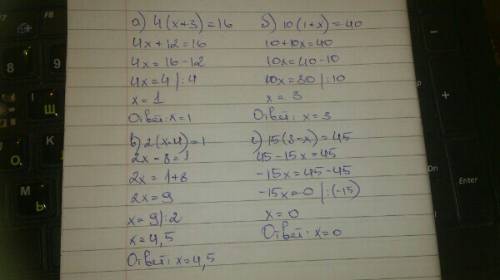 а) 4(x+3)=16
4x+12=16
4x=16-12
4x=4|:4
x=1
Ответ: x=1
б) 10(1+x)=40
10+10x=40
10x=40-10
10x=30|:10
x=3
Ответ: x=3
в) 2(x-4)=1
2x-8=1
2x=1+8
2x=9
x=9|:2
x=4,5
Ответ: x=4,5
г) 15(3-x)=45
45-15x=45
-15x=45-45
-15x=0|:(-15)
x=0
Ответ: x=0